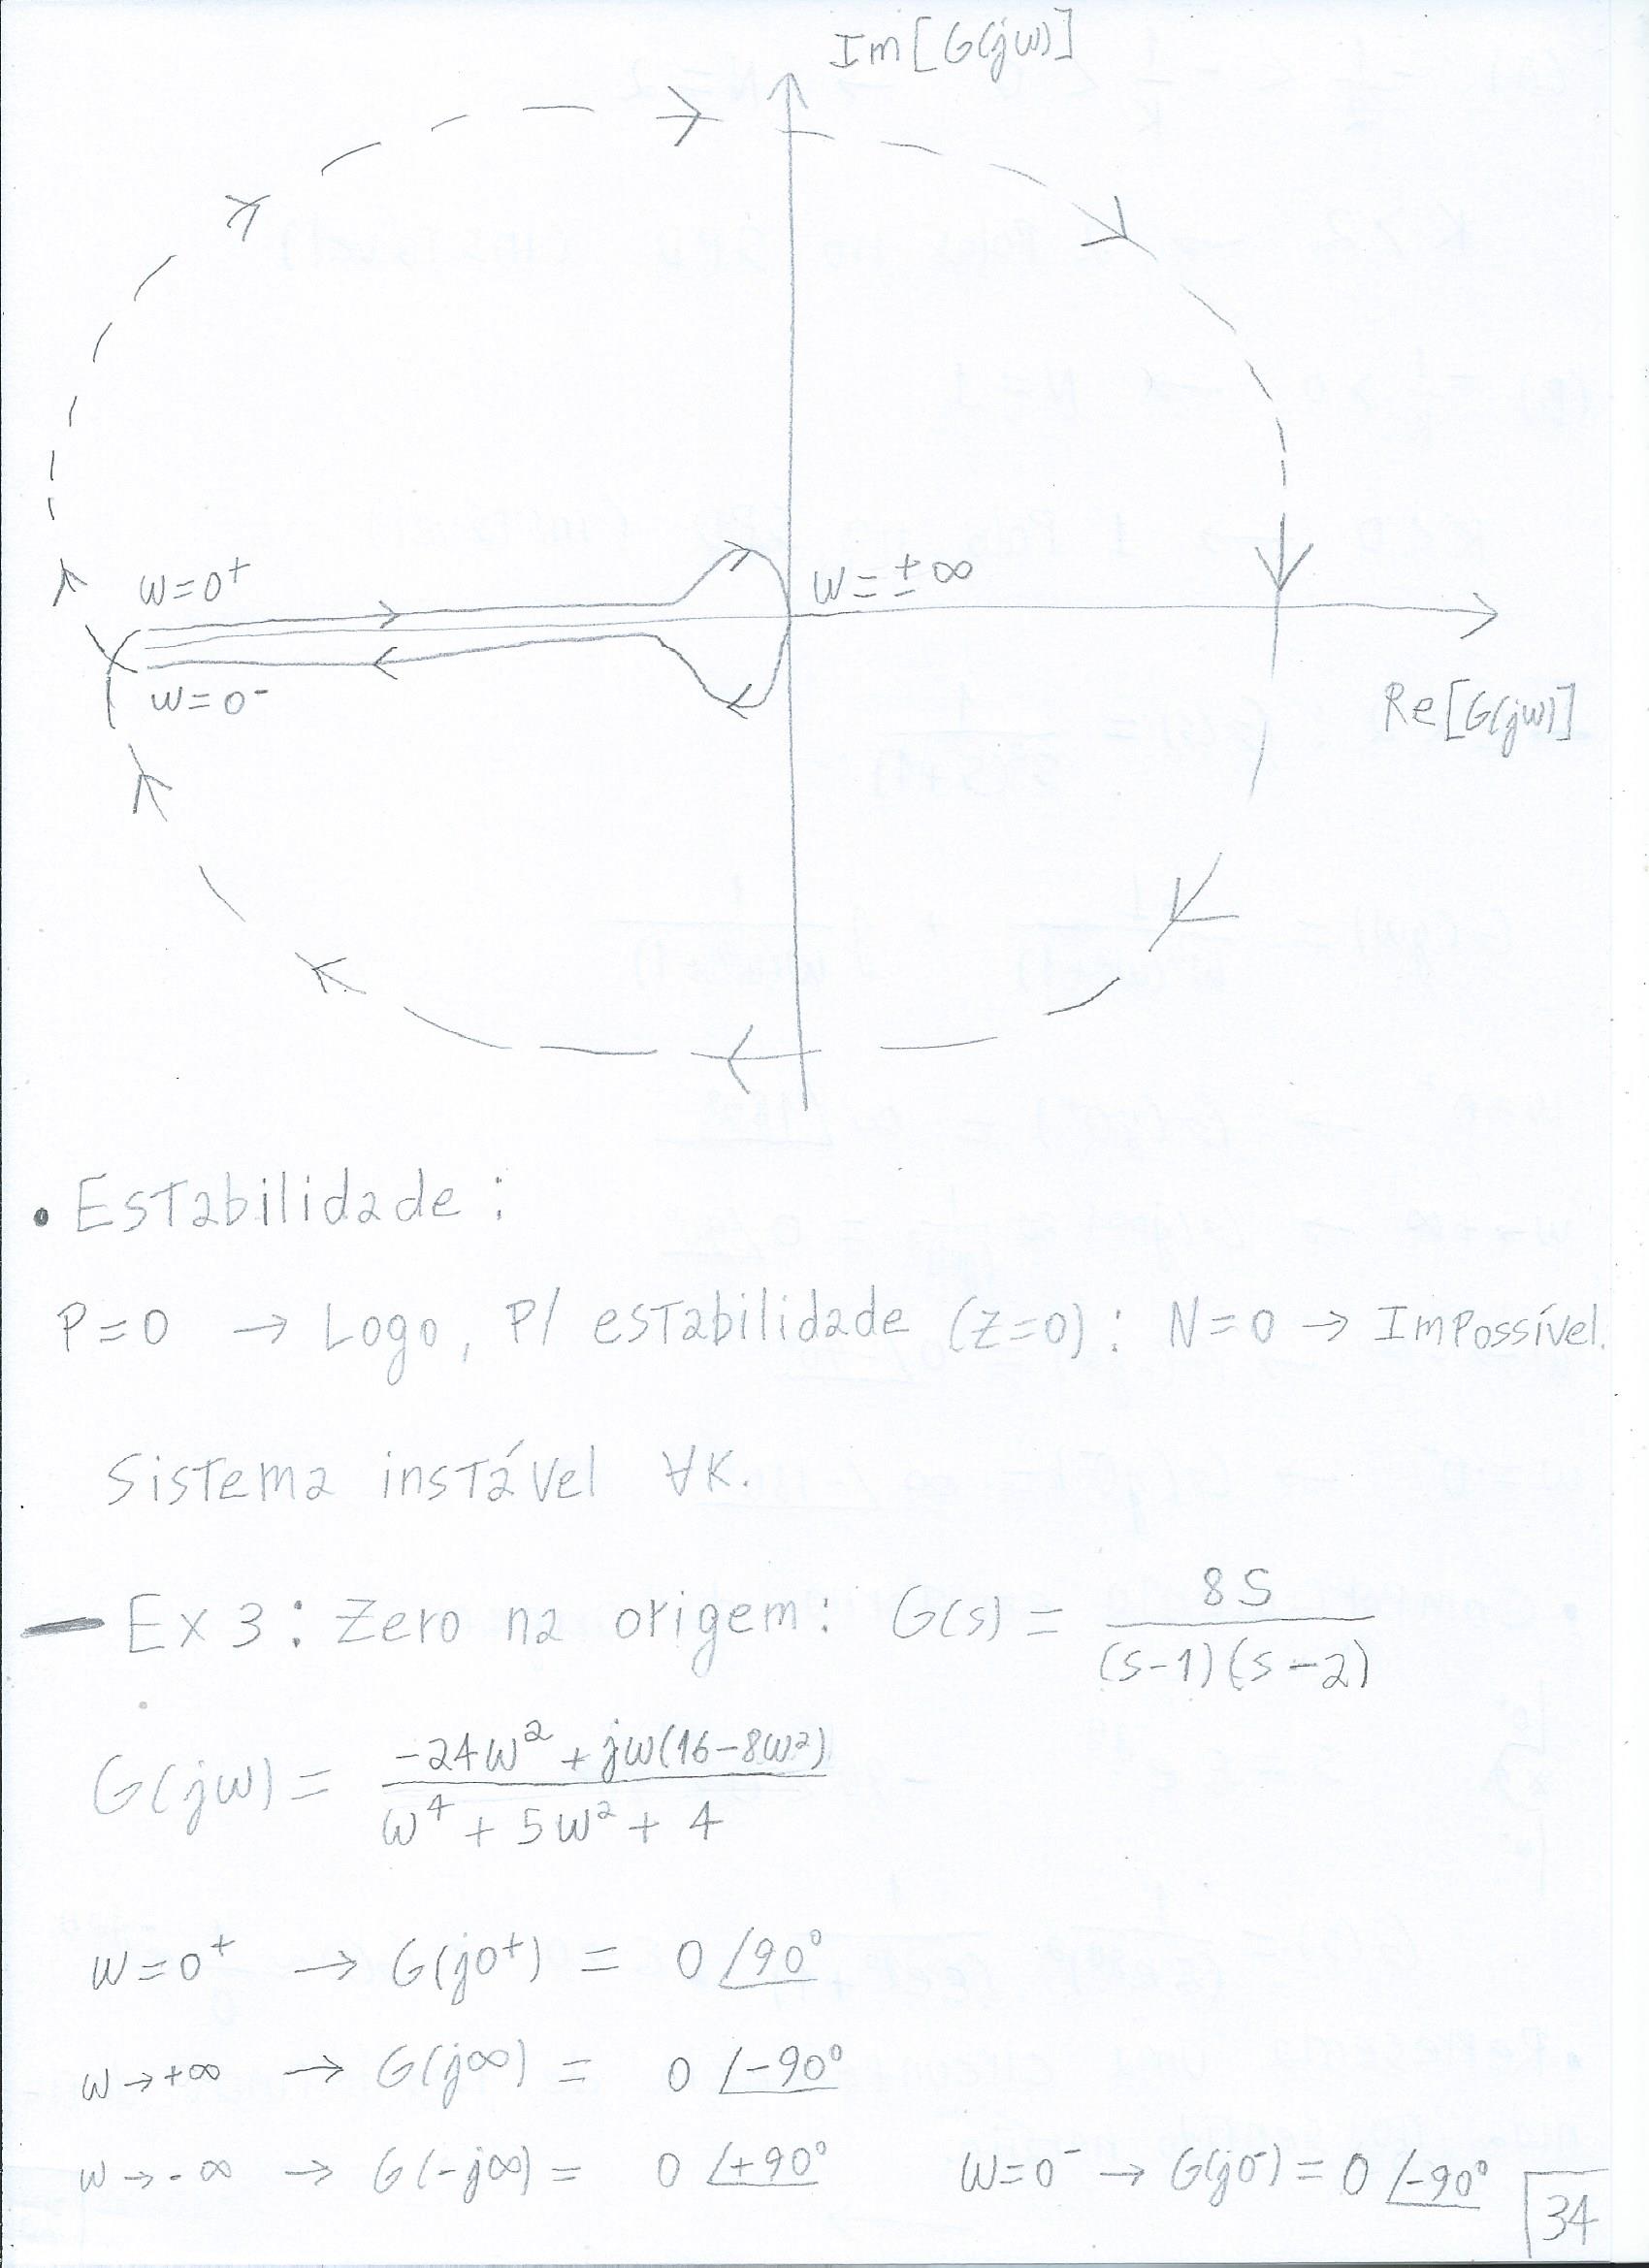 Im[G(jω)]
ω=0⁺
ω=±∞
ω=0⁻
Re[G(jω)]
• Estabilidade:
P=0 → Logo, P/ estabilidade (Z=0): N=0 → Impossível.
Sistema instável ∀K.
— Ex 3: Zero na origem: G(s) = 8S / (S-1)(S-2)
G(jω) = -24ω² + jω(16-8ω²) / ω⁴ + 5ω² + 4
ω=0⁺ → G(j0⁺) = 0 ∠90°
ω→+∞ → G(j∞) = 0 ∠-90°
ω→-∞ → G(-j∞) = 0 ∠+90° ω=0⁻ → G(j0⁻) = 0 ∠-90°
34